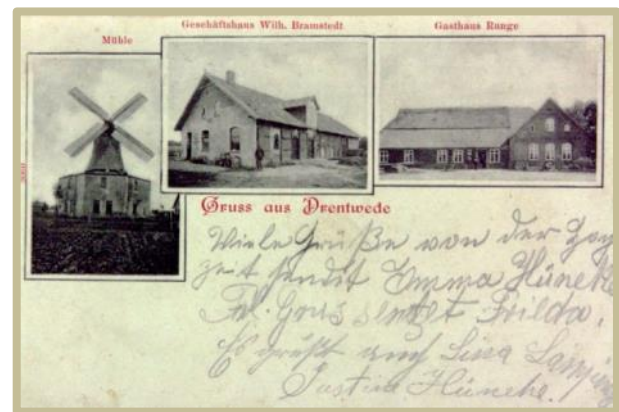 Geschäftshaus Wilh. Bramstedt
Gasthaus Runge
Mühle
Gruss aus Drentwede
Viele Grüße von der
sendet Emma Hüneke
Frl. Grus sentet Frilda.
Es grüßt auch Lina
Justine Hüneke.